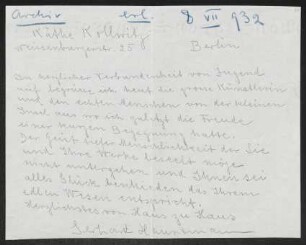 Archiv erl. 8 VII 932
Käthe Kollwitz
Weissenburgerstr. 25
Berlin
In herzlicher Verbundenheit von Jugend
auf begrüsse ich heut die grosse Künstlerin
und den echten Menschen von der kleinen
Insel aus wo ich jüngst die Freude
einer kurzen Begegnung hatte.
Der Geist tiefer Menschlichkeit der Sie
und Ihre Werke beseelt möge
nicht untergehen und Ihnen sei
alles Glück beschieden das Ihrem
edlen Wesen entspricht.
Herzlichstes von Haus zu Haus
Gerhart Hauptmann